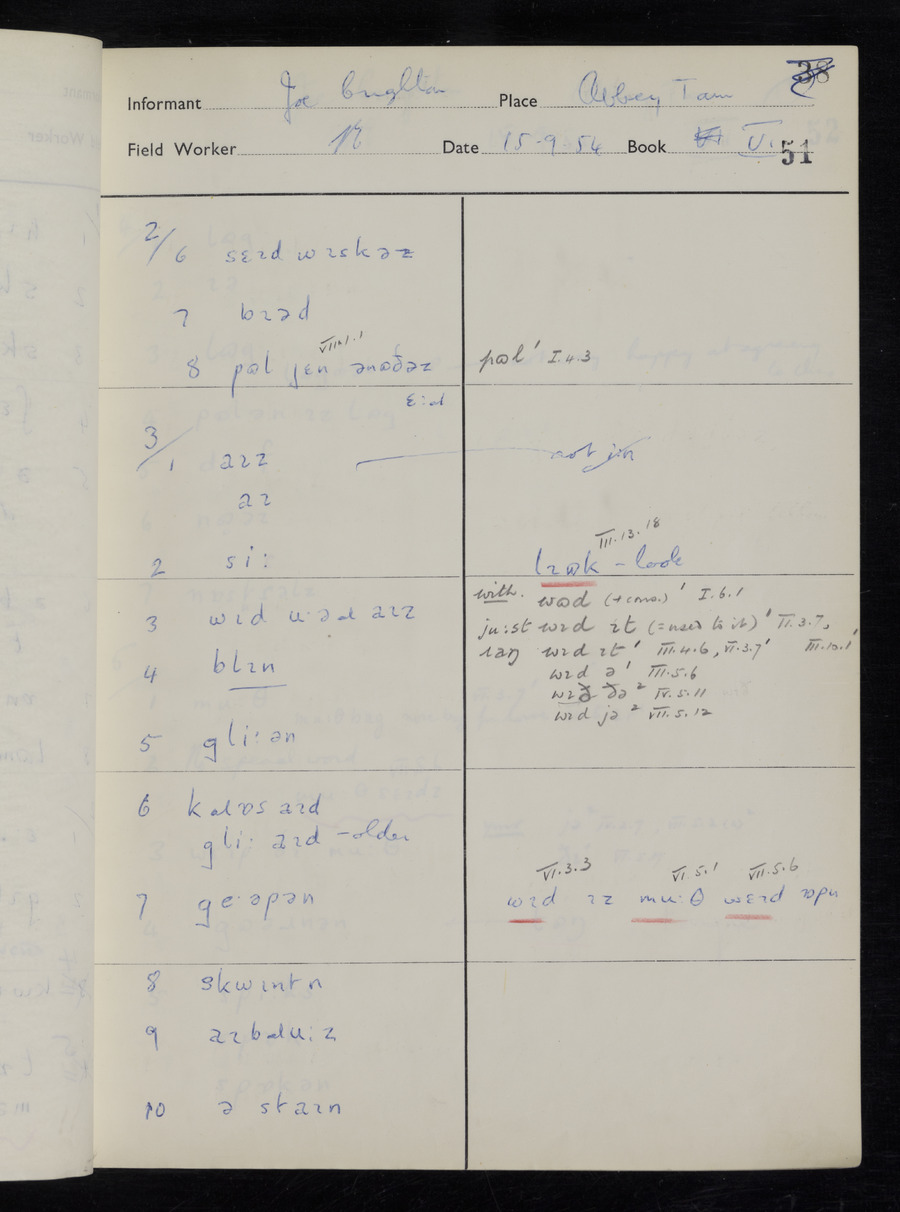 38
Informant Joe Place Abbey Town
Field Worker Date 15-9-54 Book VI. V. 51
2/6 sɛɪd wɪskəz
7 bɪəd
8 pʊl jɛn ənʊðəz VIII.1.1 pʊl' I.4.3
ɛ:d
3/1 aɪz not jɛn
aɪ
III.13.18
2 si: lɪʊk - look
with. wʊd (+cons.)' I.6.1
3 wɪd u·əd aɪz ju:st wɪd ɪt (=used to it)' II.3.7,
ɪaŋ wɪd ɪt' III.4.6, VI.3.7' III.10.1'
4 blɪn wɪd ə' III.5.6
wɪð ðə² IV.5.11
wɪd jə² VII.5.12
5 gli:ən
6 kɑlʊs aɪd
gli: aɪd - older
VI.3.3 VI.5.1 VII.5.6
7 ge·əpən wɪd ɪz mu:θ wɛɪd ɔpn
8 skwɪntn
9 aɪbɑlu:z
10 ə staɪn